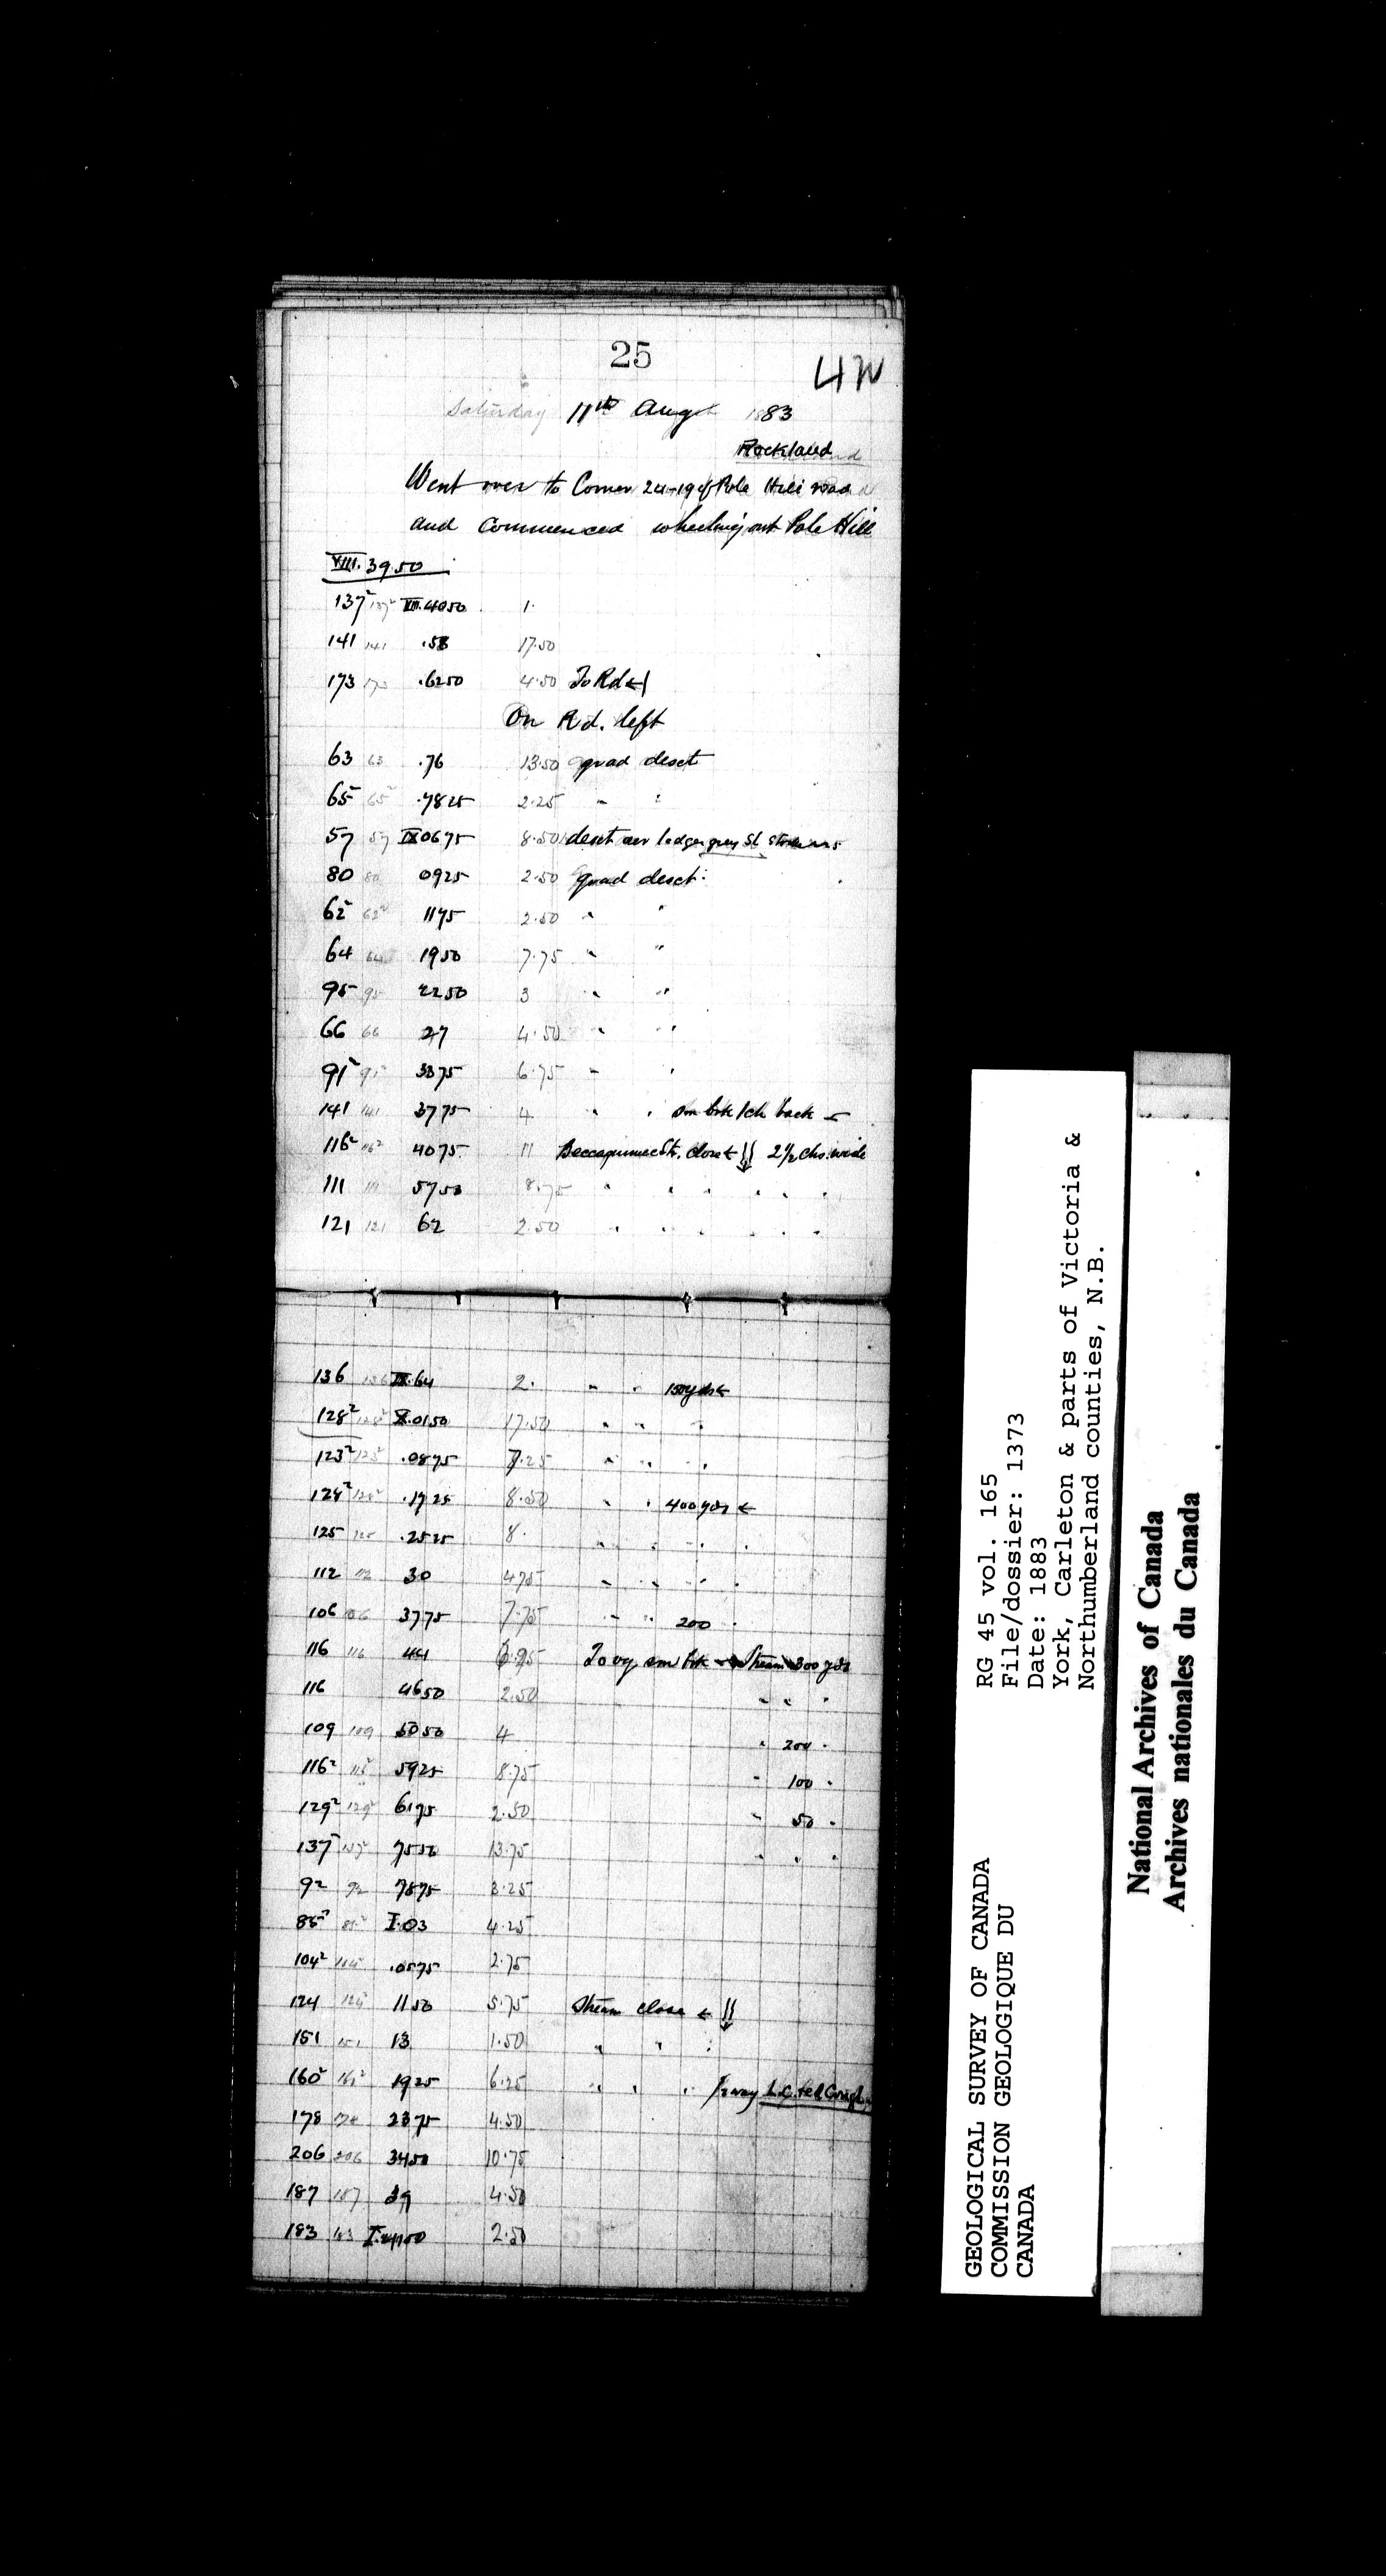 25
4W
Saturday 11th Augt 1883
Rockland
Went over to Corner 24-19 of Pole Hill road
and commenced wheeling out Pole Hill
VIII. 39.50
137² 137² VIII.4050 1.
141 141 .58 17.50
173 173 .6250 4.50 To Rd ←|
On Rd. left
63 63 .76 13.50 grad desct
65 65 .7825 2.25 " "
57 57 IX 0675 8.50 desct over ledges grey Sl
80 80 0925 2.50 grad desct.
62² 62² 1175 2.50 " "
64 64 1950 7.75 " "
95 95 2250 3 " "
66 66 27 4.50 " "
91² 91² 3375 6.75 " "
141 141 3775 4 " " sm brk 1 ch back
116² 116² 4075 11 Beccaguimec Str. close ← 2½ chs. wide
111 111 5750 8.75 " " " " " "
121 121 62 2.50 " " " " " "
136 136 IX.64 2. " " 150 yds ←
128² 128² X.0150 17.50 " " "
123² 123² .0875 7.25 " " " "
128² 128² .1725 8.50 " " 400 yds ←
125 125 .2525 8. " " " "
112 112 30 4.75 " " " "
106 106 3775 7.75 " " 200 "
116 116 44 6.25 To vy sm brk Stream 300 yds
116 4650 2.50 " " "
109 109 5050 4 " 200 "
116² 5925 8.75 " 100 "
129² 129² 6175 2.50 " 50 "
137² 137² 7550 13.75 " " "
92 92 7875 3.25
85² 85² I.03 4.25
104² 104² .0575 2.75
124 1150 5.75 Stream close ←
151 151 13 1.50 " " "
160² 1925 6.25 " " "
178 178 2375 4.50
206 206 3450 10.75
187 187 39 4.50
183 183 I.4150 2.50
GEOLOGICAL SURVEY OF CANADA
COMMISSION GEOLOGIQUE DU
CANADA
RG 45 vol. 165
File/dossier: 1373
Date: 1883
York, Carleton & parts of Victoria &
Northumberland counties, N.B.
National Archives of Canada
Archives nationales du Canada